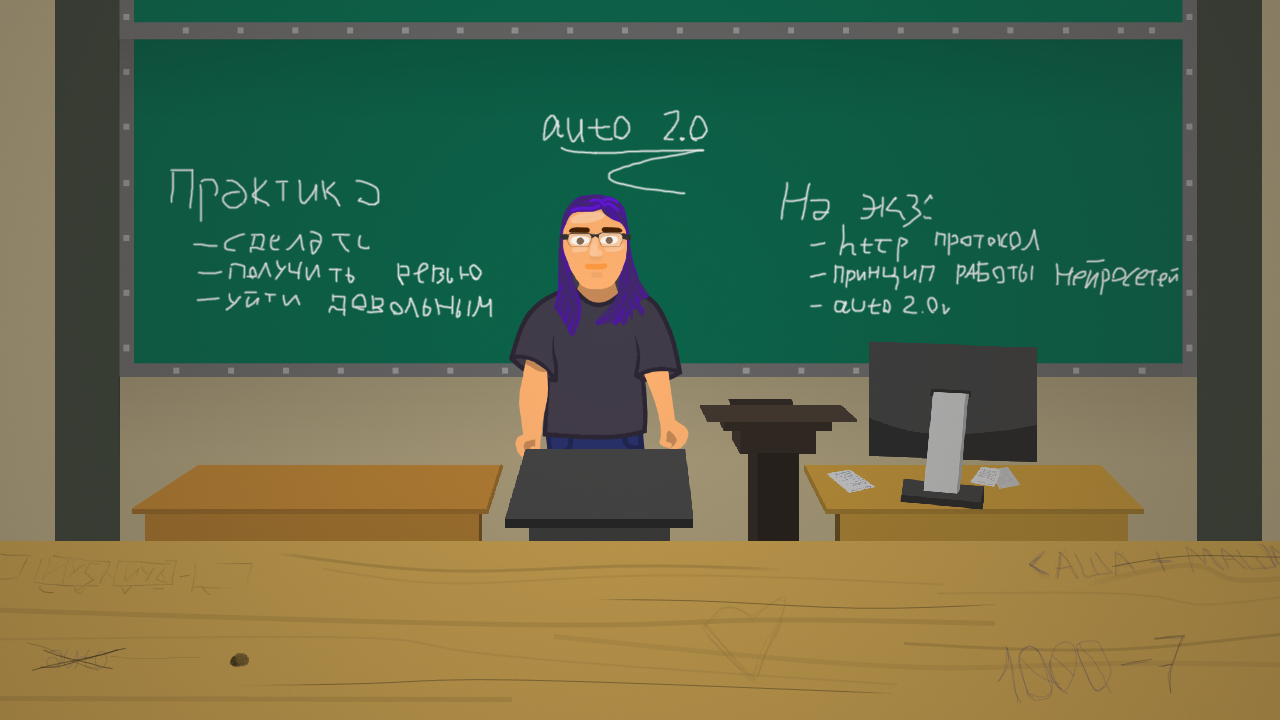 auto 2.0
Практика
- сделать
- получить ревью
- уйти довольным
На экз:
- http протокол
- принцип работы нейросетей
- auto 2.0
Саша + Маш
1000 - 7